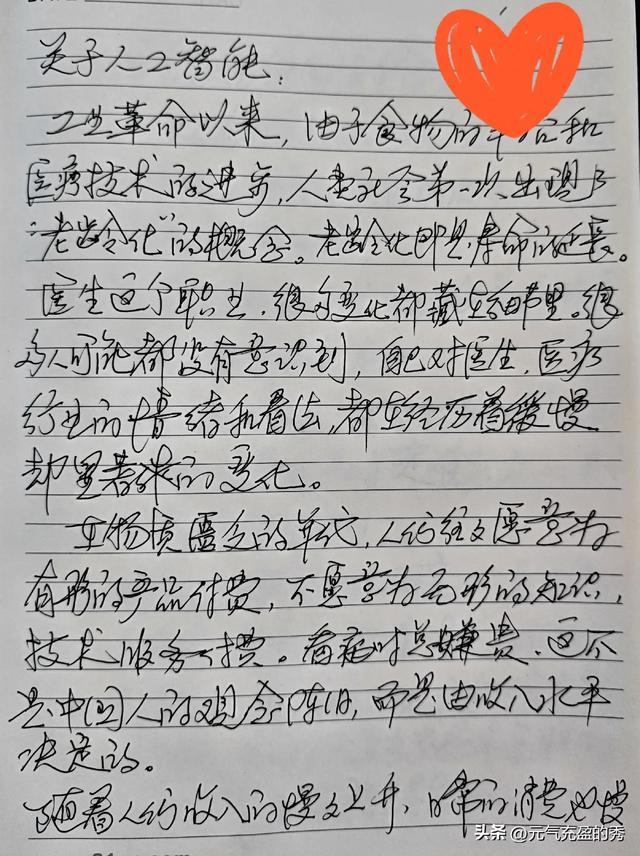 关于人工智能：
工业革命以来，由于食物的丰富和
医疗技术的进步，人类社会第一次出现了
“老龄化”的概念。老龄化即是寿命的延长。
医生这个职业，很多变化都藏在细节里。很
多人可能都没有意识到，自己对医生，医疗
行业的情绪和看法，都在经历着缓慢
却显著的变化。
在物质匮乏的年代，人们往往愿意为
有形的产品付费，不愿意为无形的知识，
技术服务付费。看病时总嫌贵，这不
是中国人的观念陈旧，而是由收入水平
决定的。
随着人们收入的慢慢上升，日常的消费也慢
头条 @元气充盈的秀